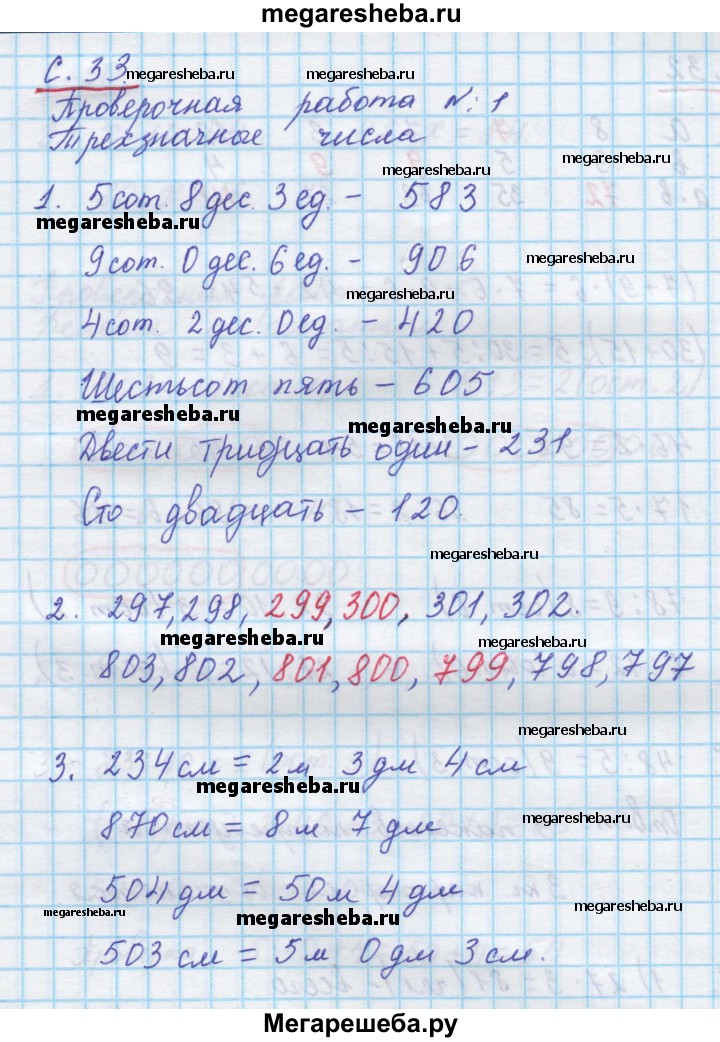 megaresheba.ru
С. 33 megaresheba.ru
Проверочная работа №: 1
Трехзначные числа
megaresheba.ru
1. 5 сот. 8 дес. 3 ед. – 583
megaresheba.ru
9 сот. 0 дес. 6 ед. – 906
megaresheba.ru
megaresheba.ru
4 сот. 2 дес. 0 ед. – 420
Шестьсот пять – 605
megaresheba.ru
megaresheba.ru
Двести тридцать один – 231
Сто двадцать – 120.
megaresheba.ru
2. 297, 298, 299, 300, 301, 302.
megaresheba.ru
megaresheba.ru
803, 802, 801, 800, 799, 798, 797
megaresheba.ru
3. 234 см = 2 м 3 дм 4 см
megaresheba.ru
870 см = 8 м 7 дм
megaresheba.ru
504 дм = 50 м 4 дм
megaresheba.ru
megaresheba.ru
megaresheba.ru
503 см = 5 м 0 дм 3 см.
Мегарешеба.ру